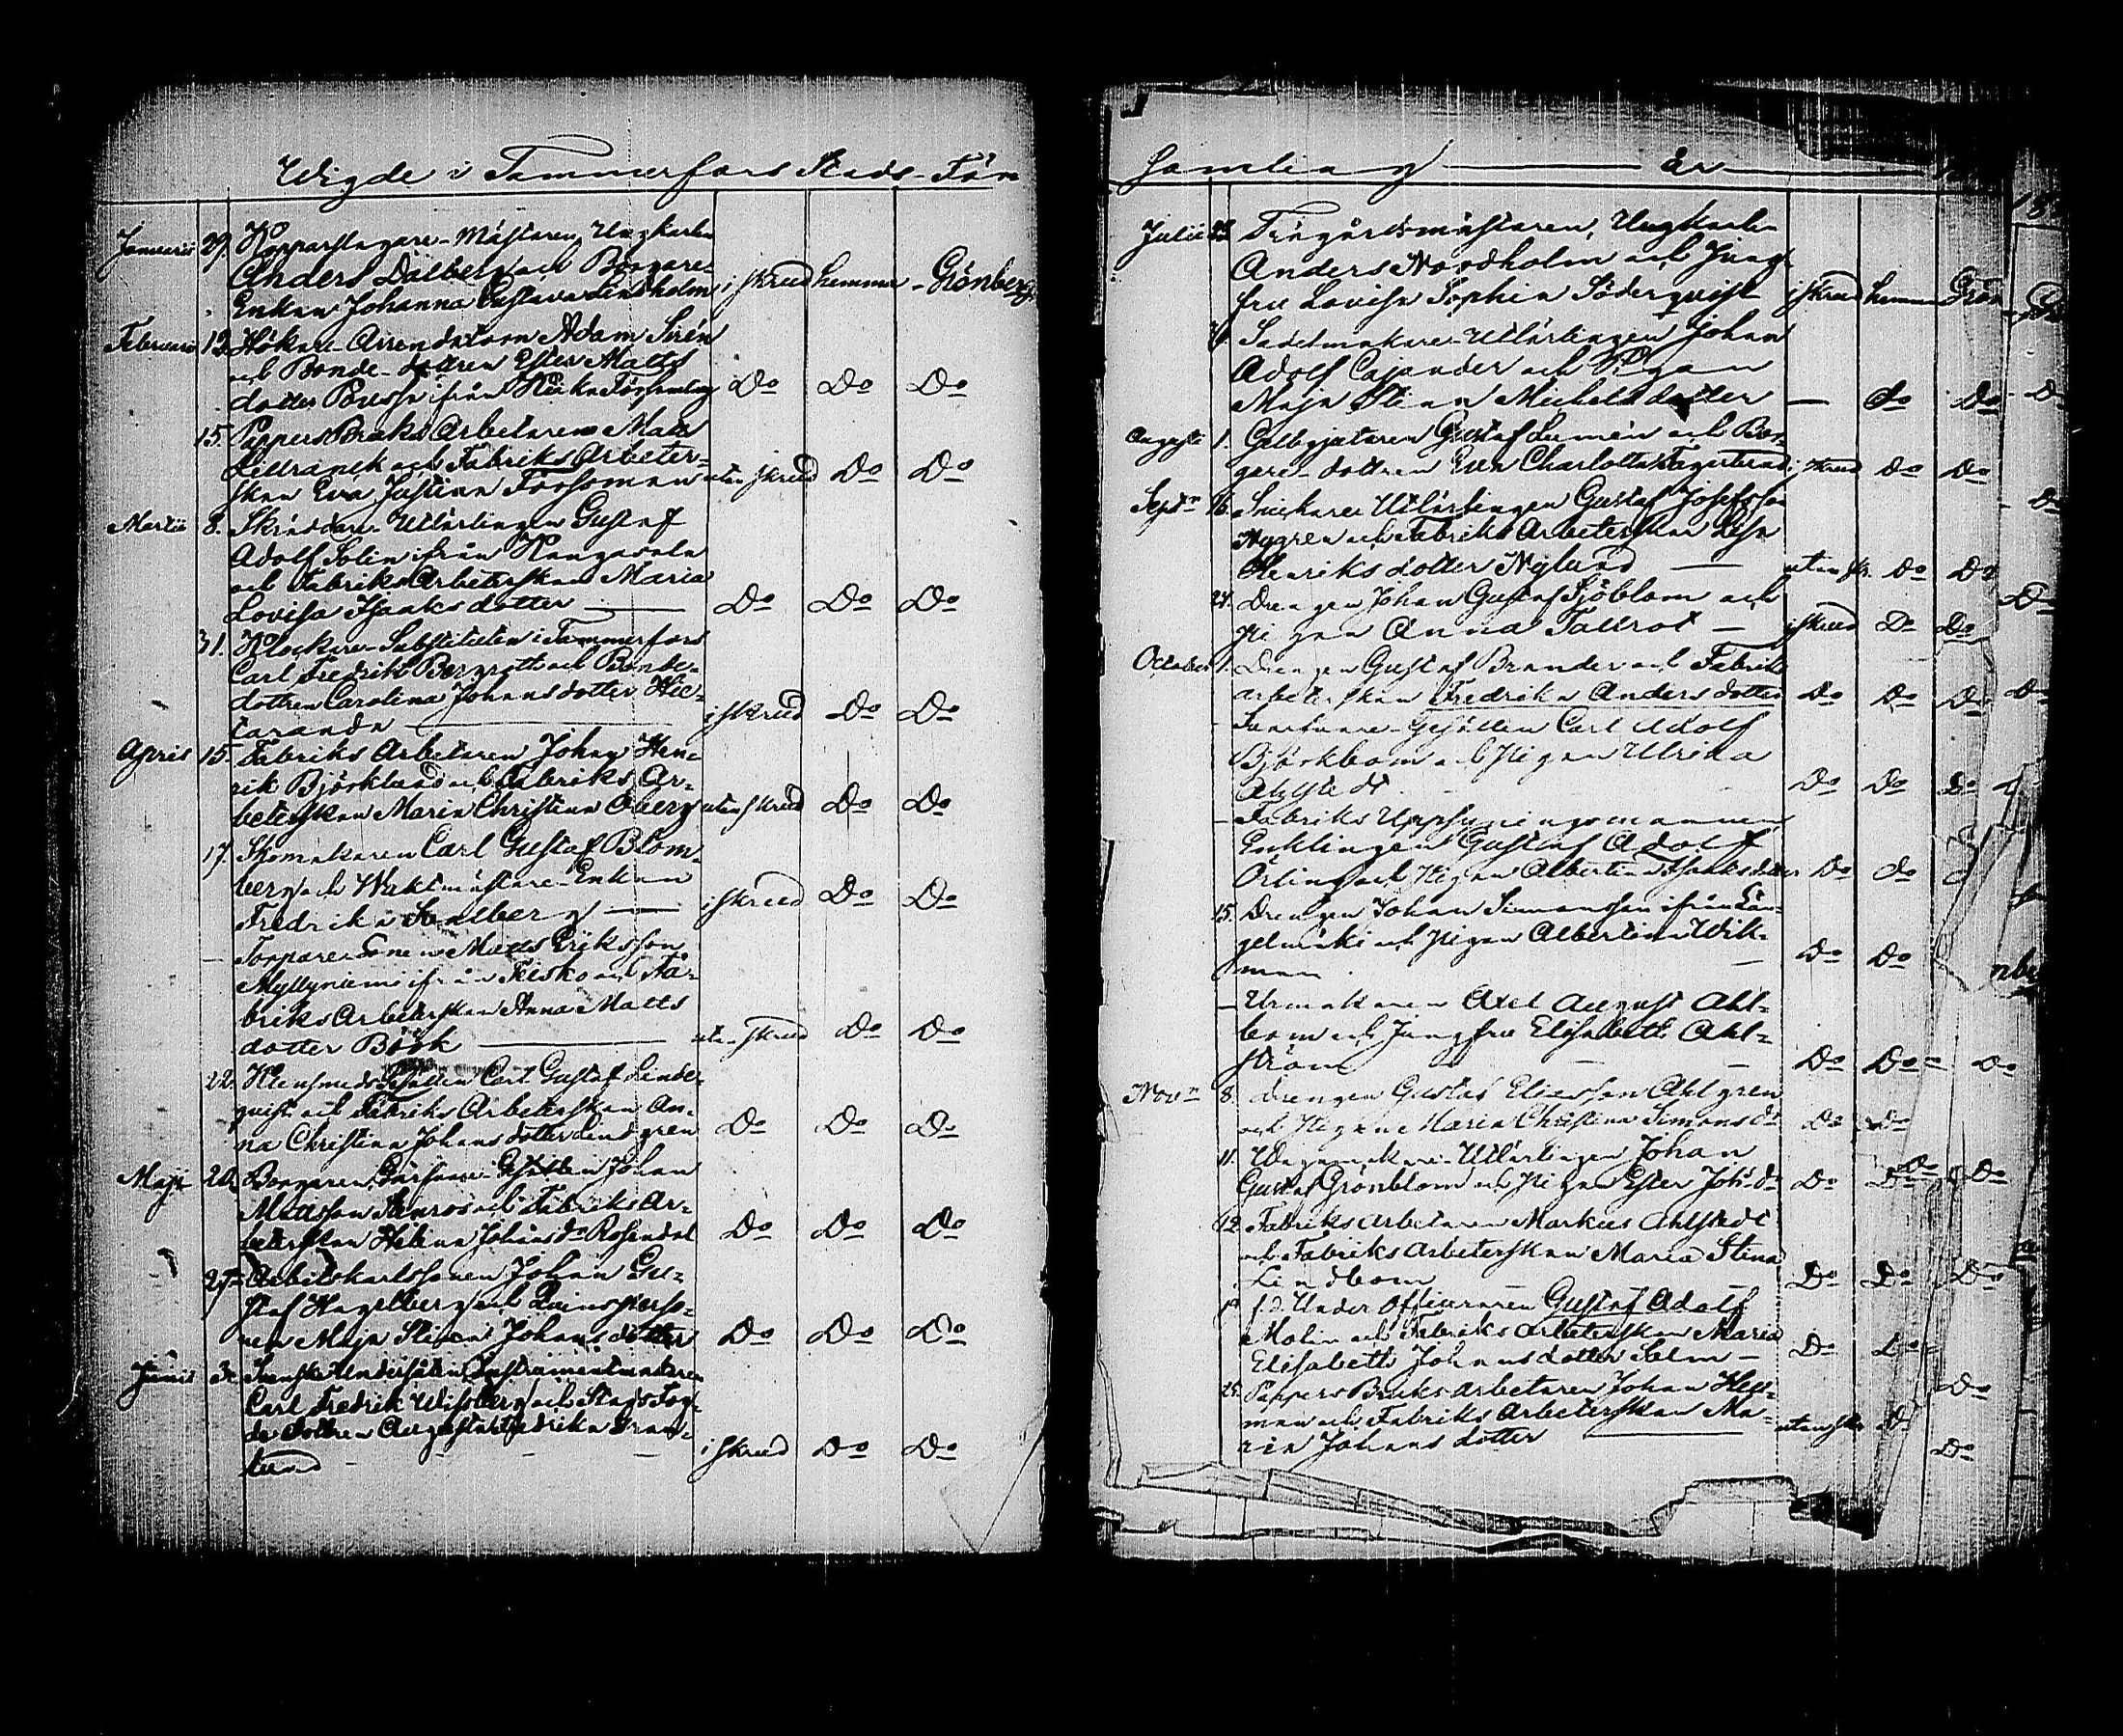 Wigde i Tammerfors Stads-För
Januarii 29. Kopparslagare-Mästaren Ungkarlen
Anders Dalberg och Borgare-
Enkan Johanna Gustava Lindholm i skrud hemma Grönberg
Februari 12. Hökare-Arrendatorn Adam Sirén
och Bonde-dottren Ester Matts
dotter från Församling Do Do Do
15. Pappers Bruks Arbetaren Mats
och Fabriks Arbeter-
skan Eva Justina Forssman utan skrud Do Do
Martii 8. Skräddare-Utlärlingen Gustaf
Adolf Solin ifrån Kangasala
och Fabriks Arbeterskan Maria
Lovisa Isaaks dotter — Do Do Do
31. Klockare-Substituten i Tammerfors
Carl Fredrik Bergroth och Bonde-
dottren Carolina Johans dotter Hie-
taranda — i skrud Do Do
April 15. Fabriks Arbetaren Johan Hen-
rik Björklund och Fabriks Ar-
beterskan Maria Christina Åberg utan skrud Do Do
17. Skomakaren Carl Gustaf Blom-
berg och Waktmästare-Enkan
Fredrika — i skrud Do Do
— Torpare Sonen Matts Eriksson
Myllyniemi ifrån Kisko och Fa-
briks Arbeterskan Anna Matts
dotter Björk — utan skrud Do Do
22. Klensmeds Gesällen Carl Gustaf Linde-
qvist och Fabriks Arbeterskan An-
na Christina Johans dotter Lindgren Do Do Do
Maji 20. Borgaren, Garfvare-Gesällen Johan
Mattsson Stenros och Fabriks Ar-
beterskan Helena Johans dr Rosendal Do Do Do
27. Arbetskarlssonen Johan Gu-
staf Hagelberg och Qvinspersо-
nen Maja Stina Johans dotter Do Do Do
Junii 3. Svenske Undersåten, Instrumentmakaren
Carl Fredrik Wissberg och Stads Fog-
de dottren Augusta Fredrika Gran-
lund — i skrud Do Do
samling — År —
Julii Trägårdsmästaren, Ungkarlen
Anders Nordholm och Jung-
fru Lovisa Sophia Söderqvist i skrud hemma Grön
Sadelmakare-Utlärlingen Johan
Adolf Cajander och Pigan
Maja Stina Michels dotter — do Do
Augusti 1. Gelbgjutaren Gustaf Lemén och Bor-
gare-dottren Eva Charlotta Fagerlund i skrud Do Do
Septr 16. Snickare Utlärlingen Gustaf Josefsson
Nygren och Fabriks Arbeterskan Lisa
Henriks dotter Nylund — utan skr. Do Do
24. Drengen Johan Gustaf Sjöblom och
Pigan Anna Tallrot — i skrud Do Do
October 1. Drengen Gustaf Brander och Fabriks
arbeterskan Fredrika Anders dotter Do Do Do
— Garfvare-Gesällen Carl Adolf
Björkbom och Pigan Ulrika
Ahlstedt Do Do Do
— Fabriks Uppsyningsmannen
Enklingen Gustaf Adolf
Örling och Pigan Albertina Isaks dotter Do do
15. Drengen Johan Simonsson ifrån Län-
gelmäki och Pigan Albertina Wik-
man — Do Do
— Urmakaren Axel August Ahl-
bom och Jungfru Elisabeth Ahl-
ström — Do Do Do
Novr 8. Drengen Gustaf Eliasson Ahlgren
och Pigan Maria Christina Simons dr Do Do
11. Wagnmakare-Utlärlingen Johan
Gustaf Grönblom och Pigan Ester Joh:dr Do Do Do
12. Fabriks Arbetaren Markus Ahlstedt
och Fabriks Arbeterskan Maria Stina
Lindbom — Do Do Do
f.d. Under Officeraren Gustaf Adolf
Molin och Fabriks Arbeterskan Maria
Elisabeth Johans dotter Salm — Do Do
25. Pappers Bruks Arbetaren Johan
man och Fabriks Arbeterskan Ma-
ria Johans dotter — utan skr. Do Do